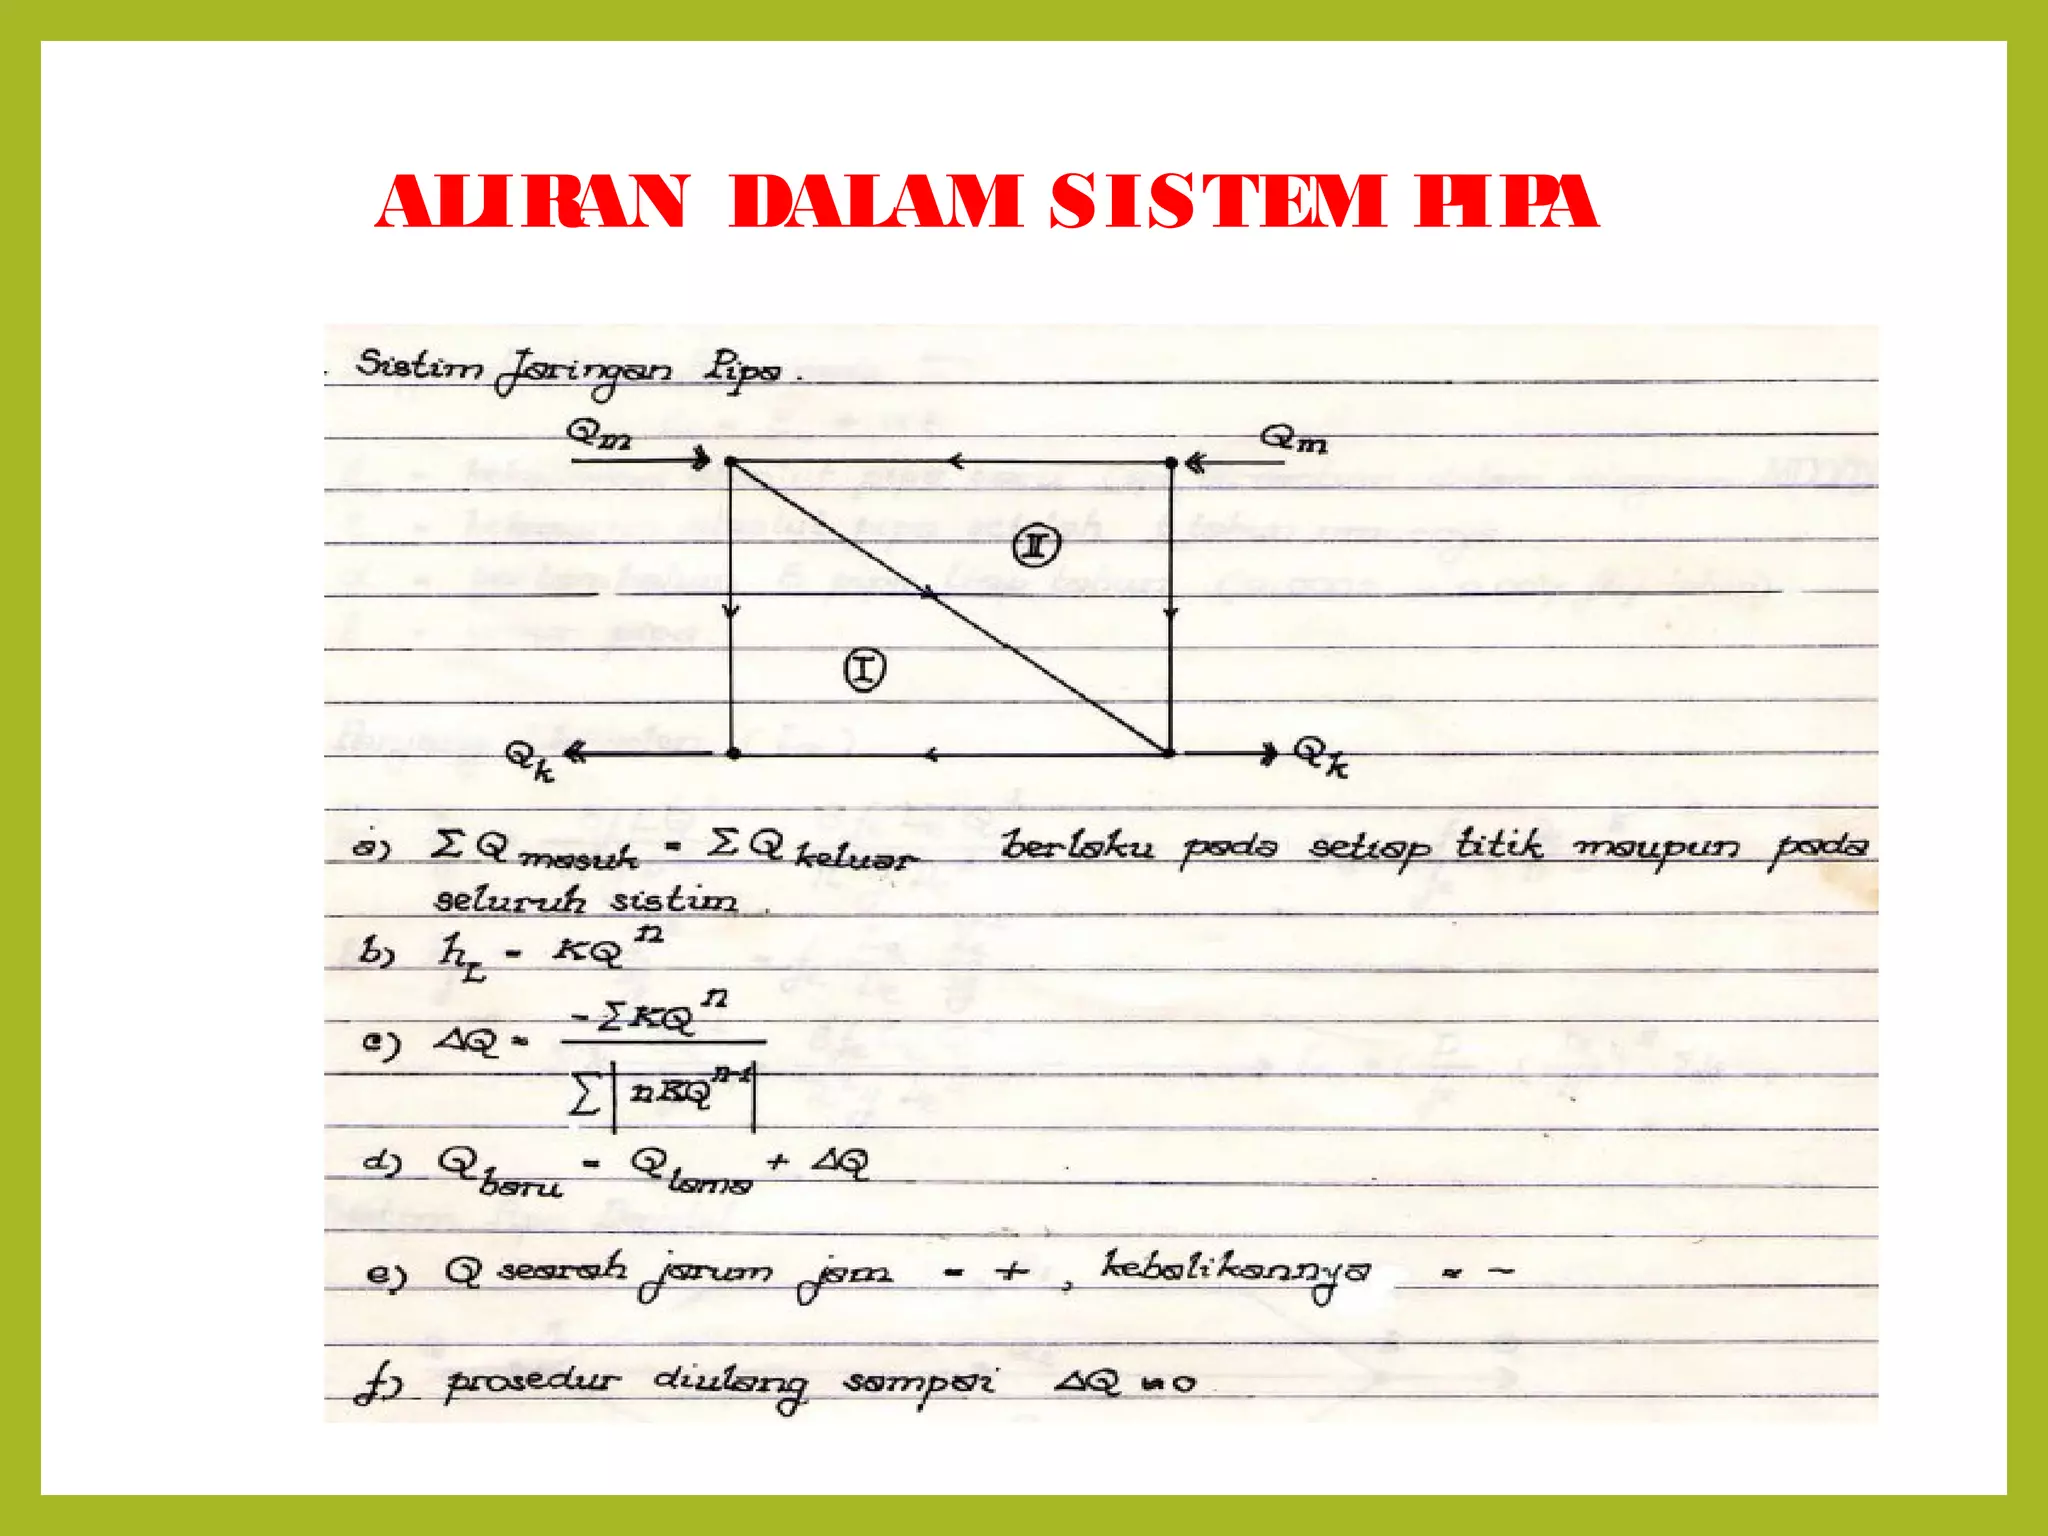 ALIRAN DALAM SISTEM PIPA
Sistim Jaringan Pipa.
Qm Qm
II
I
Qk Qk
a) Σ Q masuk = Σ Q keluar berlaku pada setiap titik maupun pada
seluruh sistim.
b) hL = KQ^n
c) ΔQ = -ΣKQ^n / Σ|nKQ^n-1|
d) Q baru = Q lama + ΔQ
e) Q searah jarum jam = + , kebalikannya = -
f) prosedur diulang sampai ΔQ ≈ 0